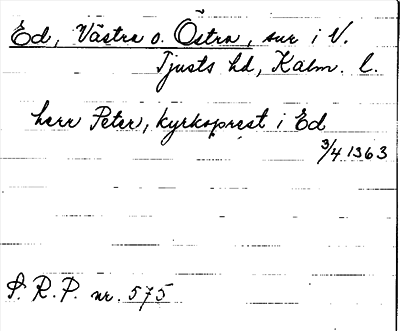 Ed, Västra o. Östra, sur i V.
Tjusts hd, Kalm. l.
herr Peter, kyrkoprest i Ed
3/4 1363
S. R. P. nr. 575